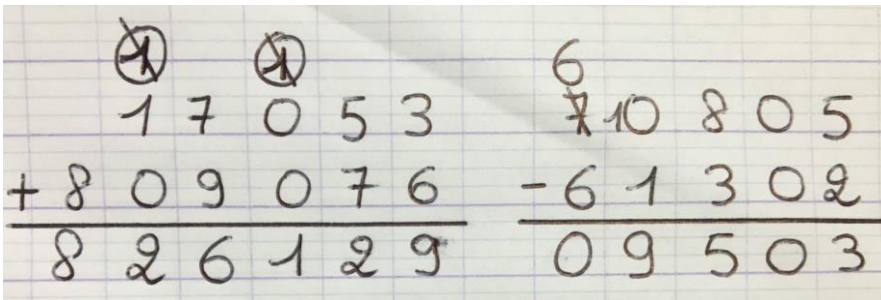 1 1
1 7 0 5 3
+ 8 0 9 0 7 6
8 2 6 1 2 9
6
7 10 8 0 5
- 6 1 3 0 2
0 9 5 0 3